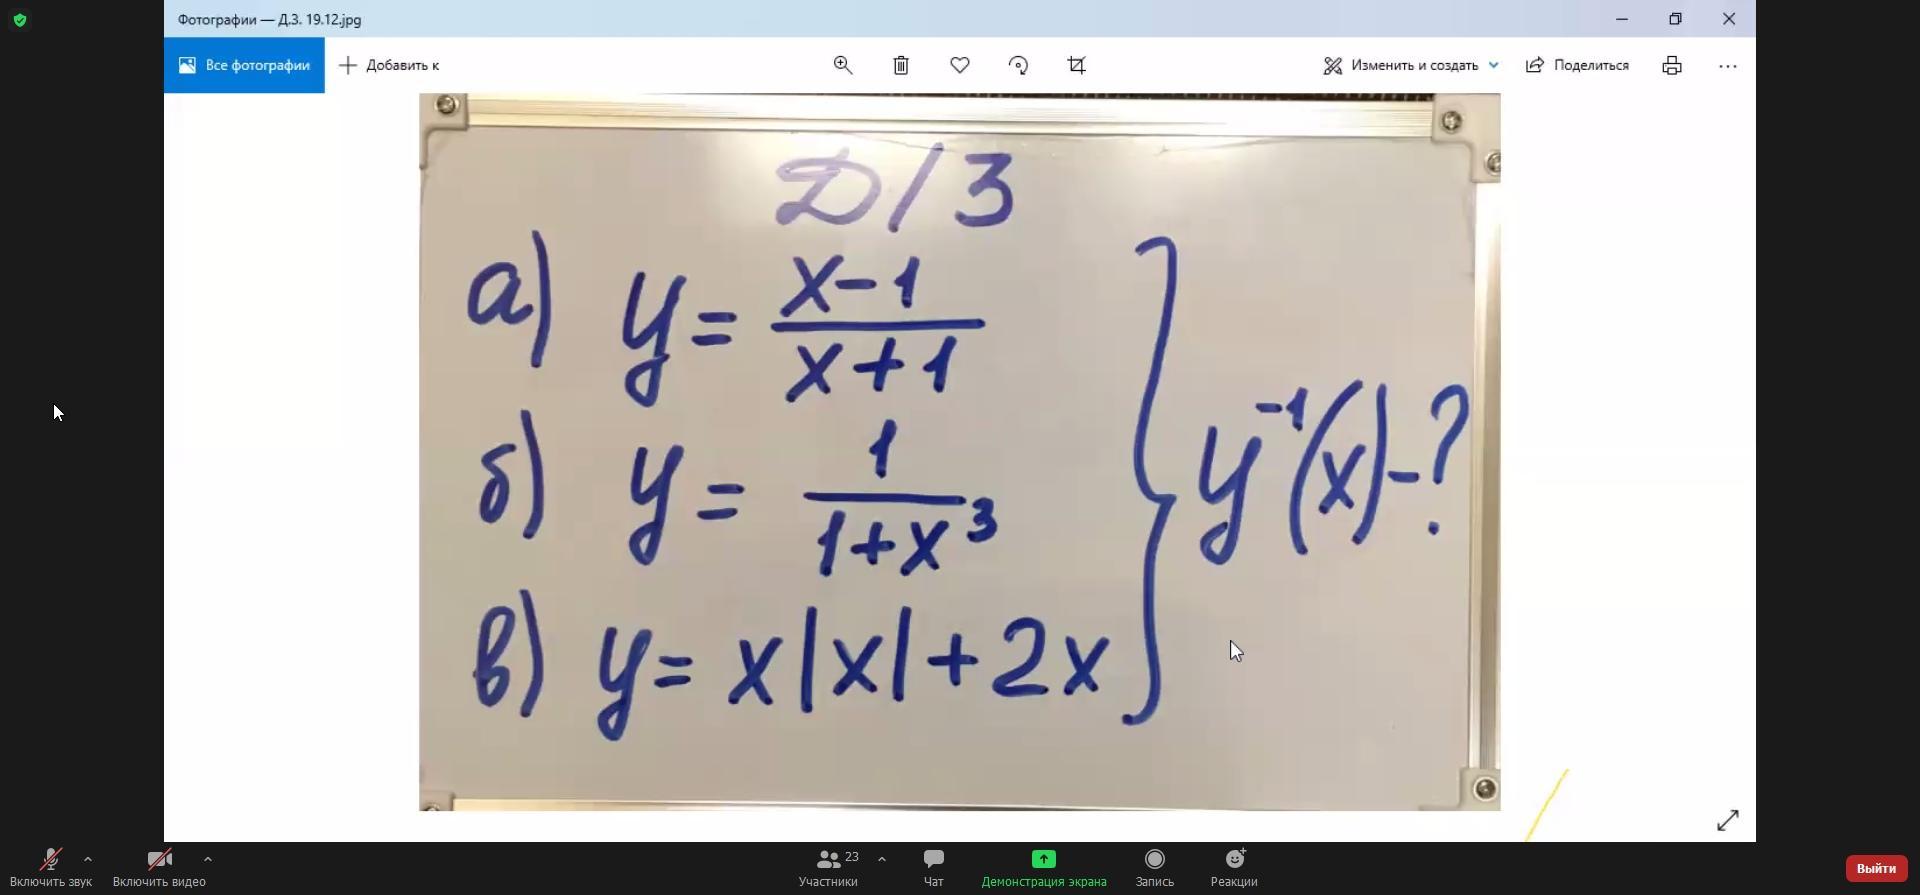 Фотографии — Д.З. 19.12.jpg
Все фотографии
Добавить к
Изменить и создать
Поделиться
Д/З
а) y = (x-1)/(x+1)
б) y = 1/(1+x³)
в) y = x|x|+2x
y⁻¹(x) - ?
Включить звук
Включить видео
23
Участники
Чат
Демонстрация экрана
Запись
Реакции
Выйти